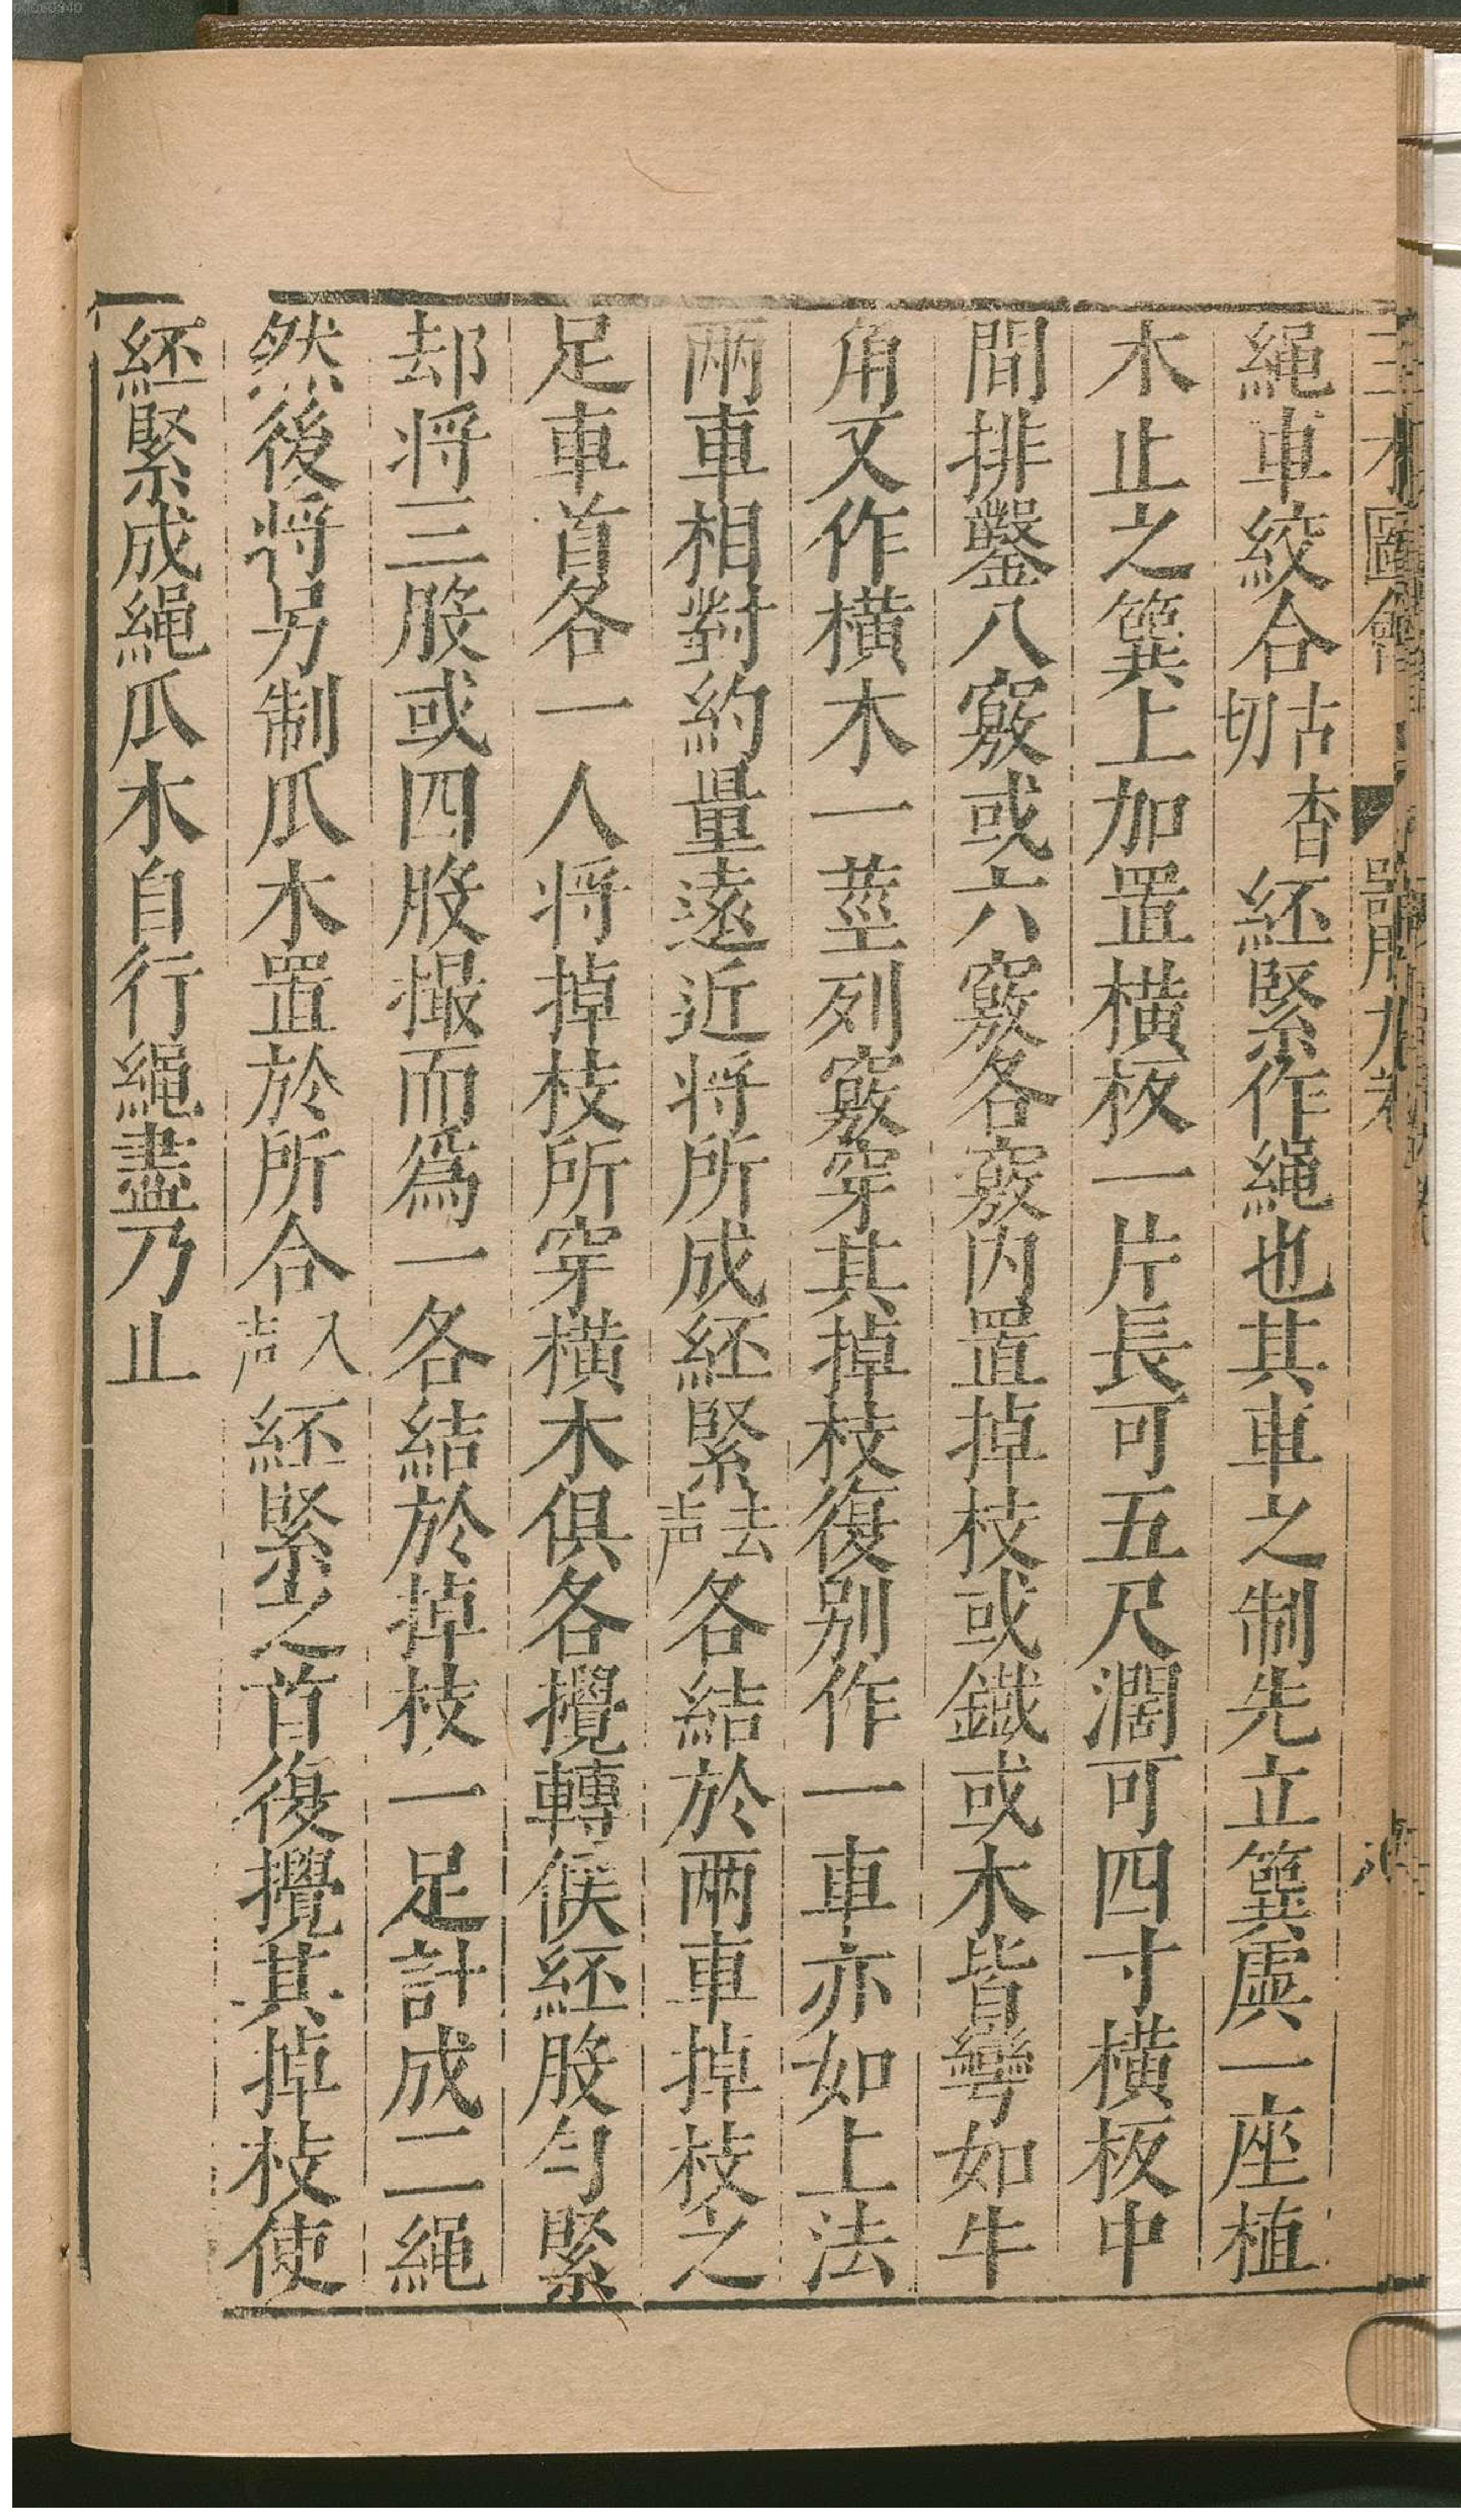 三才圖會 器用九卷
繩車絞合古杳切紝緊作繩也其車之制先立簨虡一座植
木止之簨上加置橫板一片長可五尺濶可四寸橫板中
間排鑿八竅或六竅各竅内置掉枝或鐵或木皆彎如牛
角又作橫木一莖列竅穿其掉枝復别作一車亦如上法
兩車相對約量遠近將所成紝緊去声各結於兩車掉枝之
足車首各一人將掉枝所穿橫木俱各攪轉候紝股勻緊
却將三股或四股撮而爲一各結於掉枝一足計成二繩
然後將另制瓜木置於所合入声紝緊之首復攪其掉枝使
紝緊成繩瓜木自行繩盡乃止